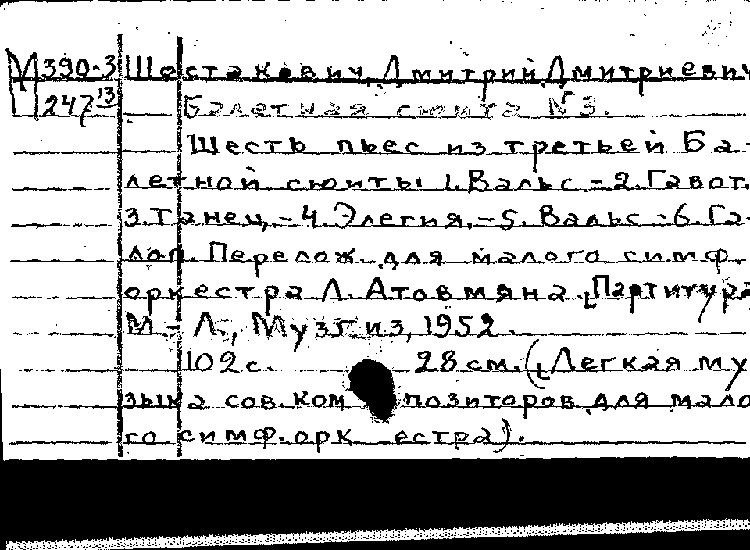 М 390-3 Шестакович, Дмитрий Дмитриевич
247 13 Балетная сюита №3.
Шесть пьес из третьей Ба-
летной сюиты 1. Вальс - 2. Гавот.
3. Танец. - 4. Элегия. - 5. Вальс - 6. Га-
лоп. Перелож. для малого симф.
оркестра Л. Атовмяна. [Партитура
М - Л., Музгиз, 1952.
102 с. 28 см. ([Легкая му
зыка сов. композиторов для мало
го симф. оркестра).